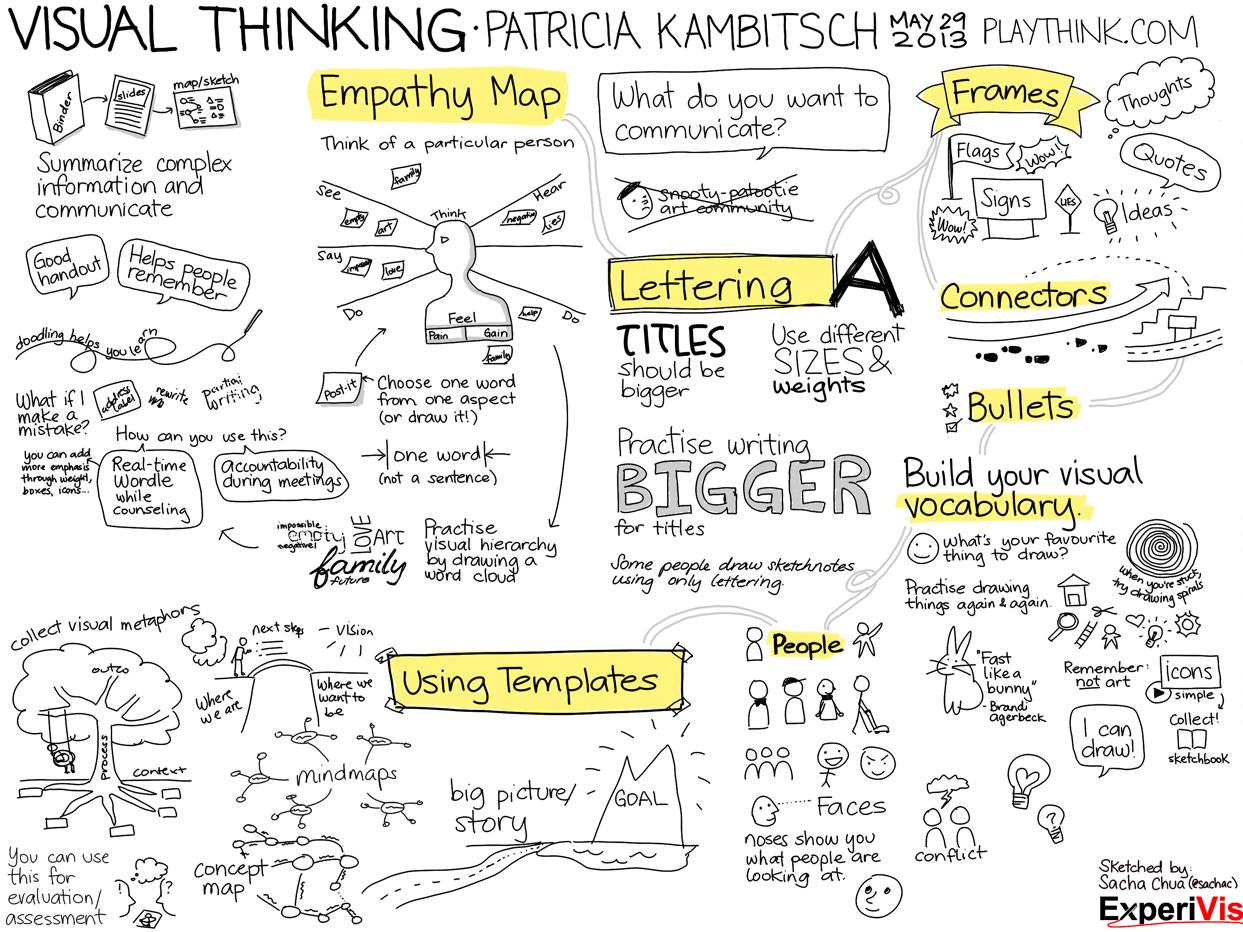 VISUAL THINKING · PATRICIA KAMBITSCH MAY 29 2013 PLAYTHINK.COM
Binder
slides
map/sketch
Summarize complex
information and
communicate
Good
handout
Helps people
remember
doodling helps you learn
What if I
make a
mistake?
address
label
rewrite
partial
writing
you can add
more emphasis
through weight,
boxes, icons...
How can you use this?
Real-time
Wordle
while
counseling
accountability
during meetings
Empathy Map
Think of a particular person
See
family
Hear
empty
art
Think
negative
lies
Say
impossible
love
Do
Feel
Pain
Gain
help
Do
family
Post-it
Choose one word
from one aspect
(or draw it!)
one word
(not a sentence)
impossible
empty
negative!
LOVE
ART
family
future
Practise
visual hierarchy
by drawing a
word cloud
What do you want to
communicate?
Snooty-patootie
art community
Lettering A
TITLES
should be
bigger
Use different
SIZES &
weights
Practise writing
BIGGER
for titles
Some people draw sketchnotes
using only lettering.
Frames
Thoughts
Flags
Wow!!
Quotes
Signs
YES
Wow!
Ideas
Connectors
Bullets
Build your visual
vocabulary.
what's your favourite
thing to draw?
when you're stuck,
try drawing spirals
Practise drawing
things again & again.
"Fast
like a
bunny"
- Brandy
agerbeck
Remember:
not art
icons
simple
I can
draw!
Collect!
sketchbook
conflict
People
Faces
noses show you
what people are
looking at.
Using Templates
collect visual metaphors
outco
process
context
next steps
vision
Where
we are
Where we
want to
be
mindmaps
concept
map
big picture/
story
GOAL
You can use
this for
evaluation/
assessment
!
?
?
Sketched by:
Sacha Chua (@sachac)
ExperiVis